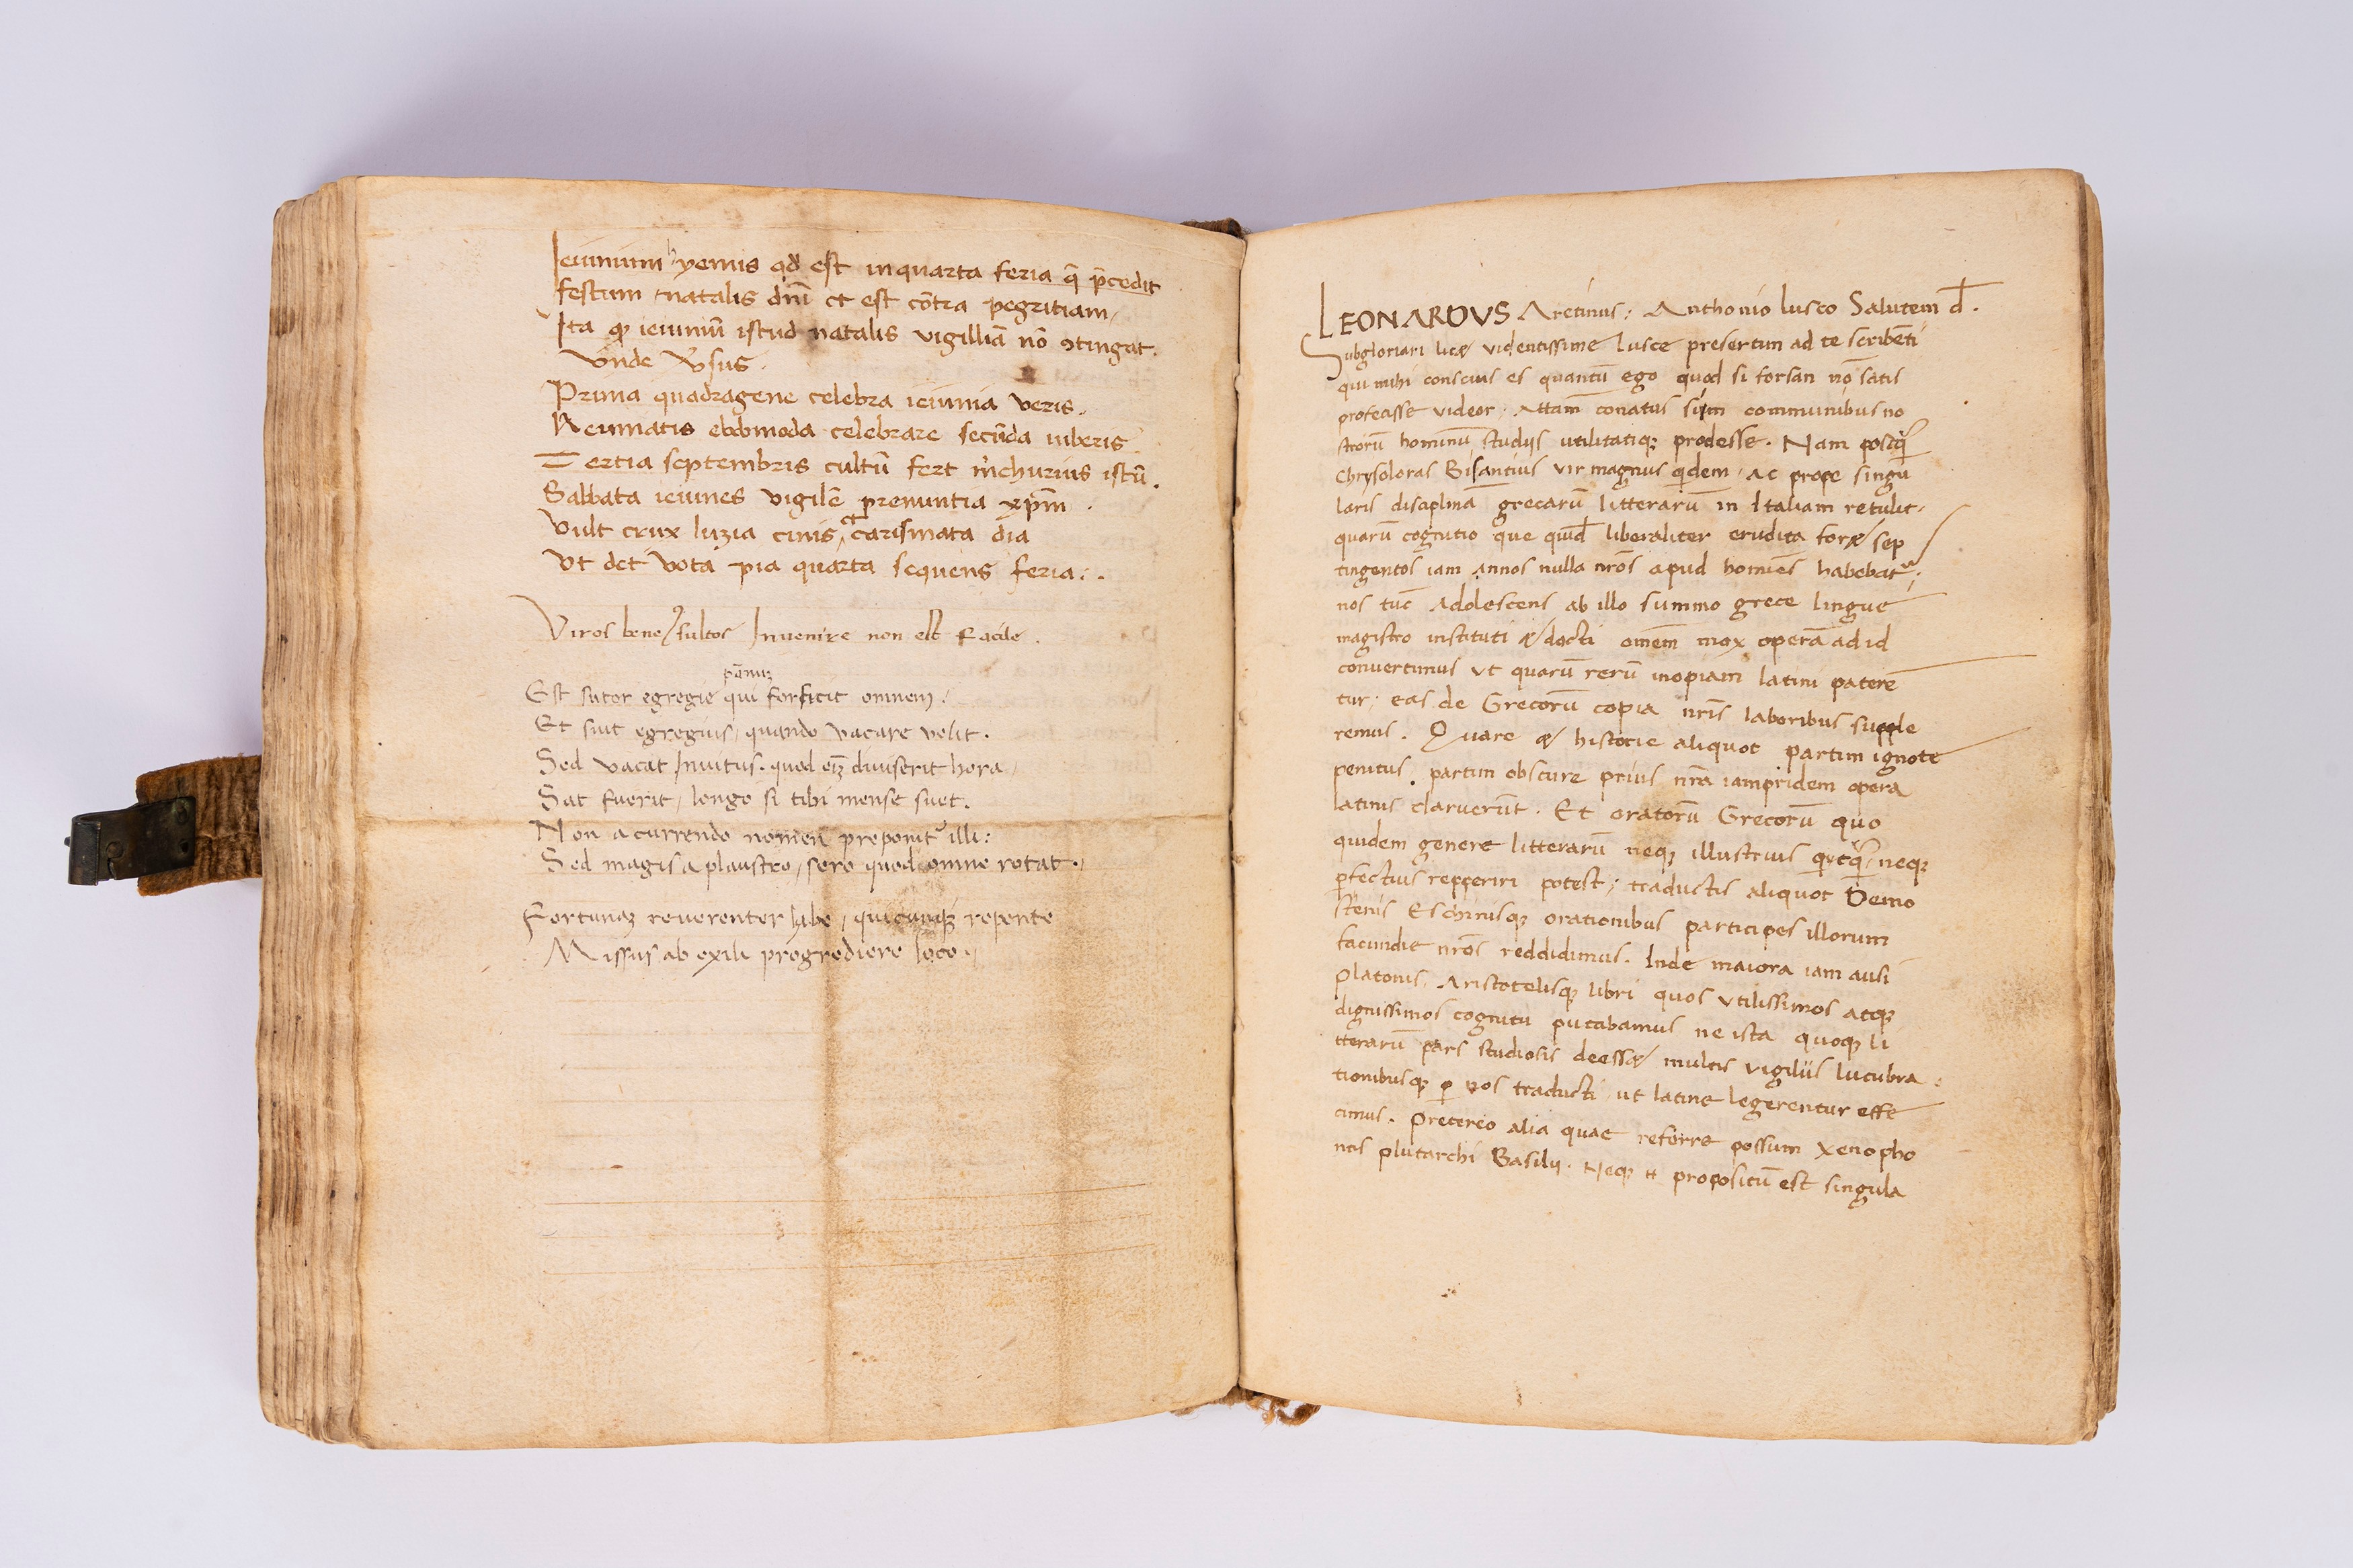 Ieiunium hyemis qd est in quarta feria q̄ p̄cedit
festum natalis dn̄i et est cōtra pegritiam
Ita qꝫ ieiuniū istud natalis vigilliā nō ꝯtingat.
Vnde v̄sus.
Prima quadragene celebra ieiunia veris.
Reumatis ebdomoda celebrare secūda iuberis
Tertia septembris cultū fert m̄churius istū.
Sabbata ieiunes vigilē prenuntia xp̄m.
Vult crux luzia cinis et carismata dia
Vt det vota pia quarta sequens feria:.
Viros bene ꝯsultos Invenire non est facile.
pānuꝫ
Est sutor egregie qui forficit omnem.
Et suit egregius, quando vacare velit.
Sed vacat Invitus. quod eiꝫ diuiserit hora,
Sat fuerit, longo si tibi mense suet.
Non a currendo nomen preponit' illi:
Sed magis a plaustro, sero quod omne rotat.
Fortunaꝫ reverenter habe, quicunqꝫ repente
Missus ab exili progrediere loco.
LEONARDVS Aretinus: Anthonio lusco Salutem d̄.
Subgloriari lic& videntissime lusce presertim ad te scribēti
qui mihi conscius es quantū ego quod si forsan nō satis
profeasse videor. Attam̄ conatus sum communibus no
strorū hominū studijs utilitatiqꝫ prodesse. Nam postq̄
Chrysoloras Bisantius vir magnus qidem, ac prope singu
laris disciplinā grecarū litterarū in Italiam retulit.
quarū cognitio que quid̄ liberaliter erudita for& sep
tingentos iam annos nulla nr̄os apud homīes habebat';
nos tūc Adolescens ab illo summo grece lingue
magistro instituti & docti omēm mox operā ad id
convertimus vt quarū rerū inopiam latini patere
tur; eas de Grecorū copia nr̄is laboribus supple
remus. Quare & historie aliquot partim ignote
penitus. partim obscure prius nr̄a iampridem opera
latinis claruerūt. Et oratorū Grecorū quo
quidem genere litterarū neqꝫ illustrius qicq̄, neqꝫ
ꝑfectius repperiri potest; traductis aliquot Demo
stenis Eschinisqꝫ orationibus participes illorum
facundie nr̄os reddidimus. Inde maiora iam ausi
Platonis, Aristotelisqꝫ libri quos vtilissimos atqꝫ
dignissimos cognitu putabamus ne ista quoqꝫ li
tterarū pars studiosis deess& multis vigiliis lucubra
tionibusqꝫ ꝑ nos traducti ut latine legerentur effe
cimus. Pretereo alia quae referre possum Xenopho
ntis plutarchi Basilij. Neqꝫ propositū est singula